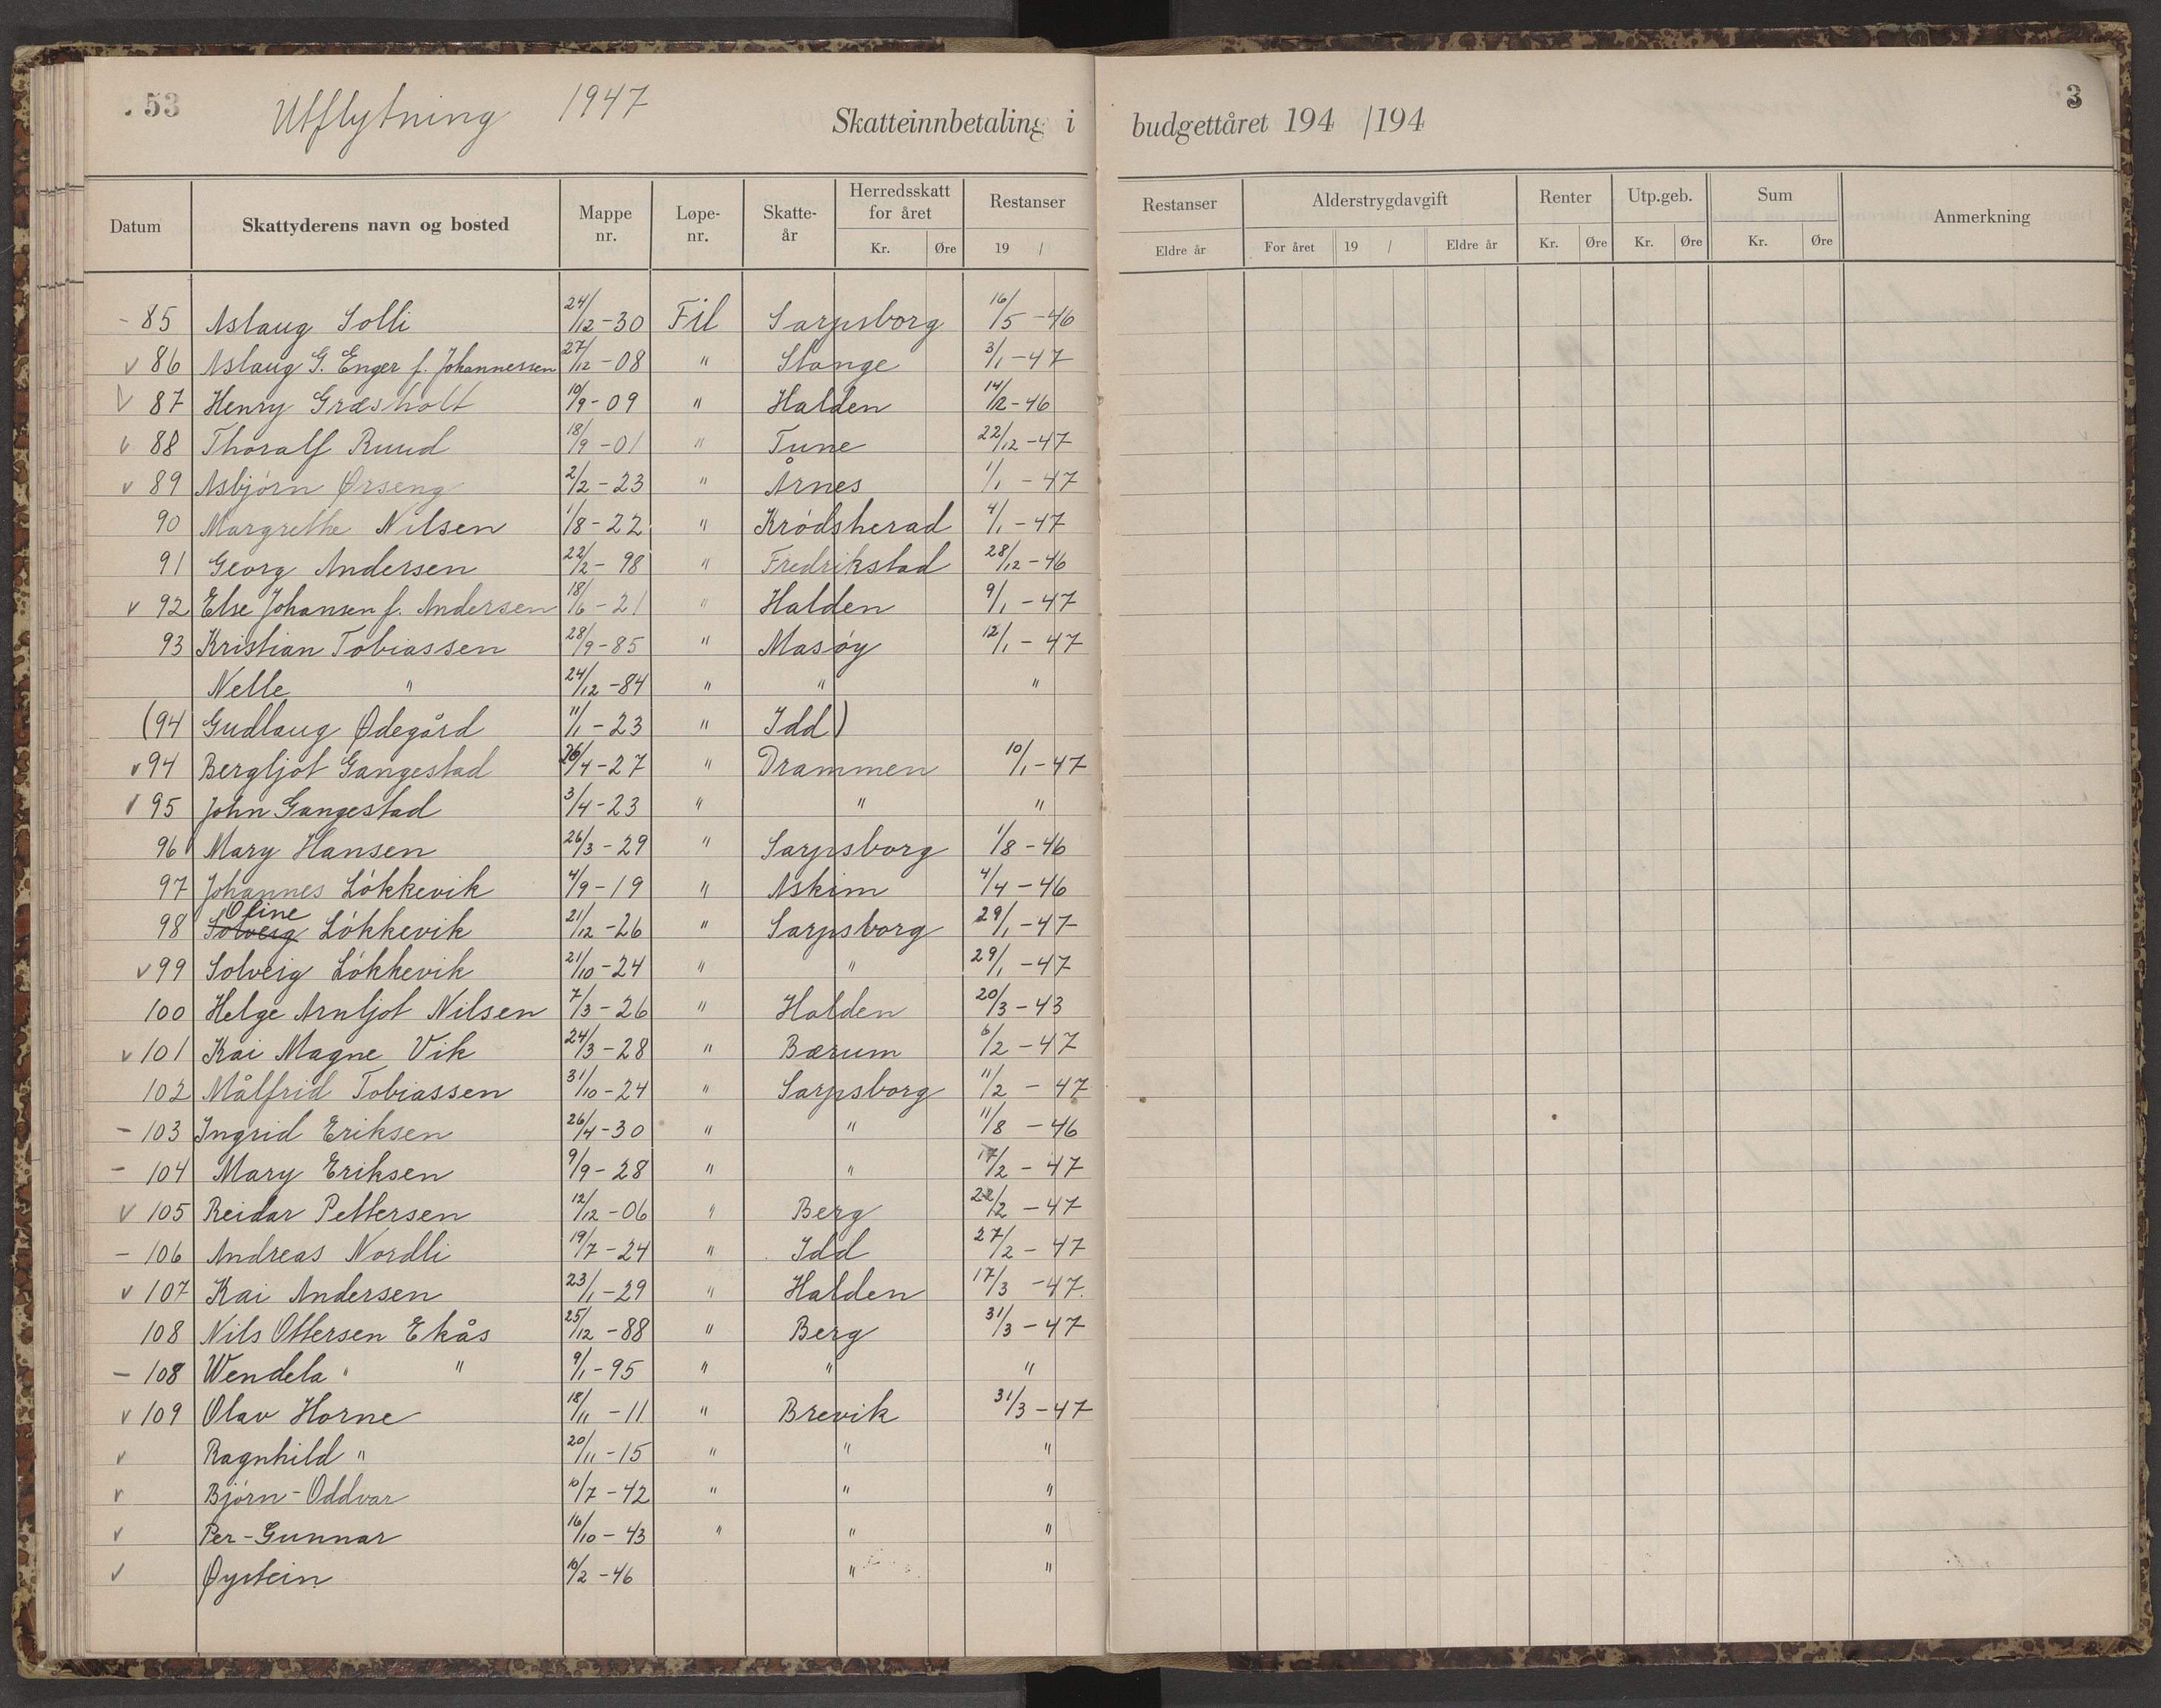 53 Utflytning 1947 Skatteinnbetaling i budgettåret 194 /194 3
Datum Skattyderens navn og bosted Mappe nr. Løpe-nr. Skatte-år Herredsskatt for året Kr. Øre Restanser 19 / Restanser Eldre år Alderstrygdavgift For året 19 / Eldre år Renter Kr. Øre Utp.geb. Kr. Øre Sum Kr. Øre Anmerkning
- 85 Aslaug Solli 24/12-30 Til Sarpsborg 16/5-46
v 86 Aslaug G. Enger f. Johannessen 27/12-08 " Stange 3/1-47
v 87 Henry Græsholt 10/9-09 " Halden 14/12-46
v 88 Thoralf Ruud 18/9-01 " Tune 22/12-47
v 89 Asbjørn Ørseng 2/2-23 " Årnes 1/1-47
90 Margrethe Nilsen 1/8-22 " Krødsherad 4/1-47
91 Georg Andersen 22/2-98 " Fredrikstad 28/12-46
v 92 Else Johansen f. Andersen 18/6-21 " Halden 9/1-47
93 Kristian Tobiassen 28/9-85 " Masøy 12/1-47
Nelle " 24/12-84 " " "
(94 Gudlaug Ødegård 11/1-23 " Idd)
v 94 Bergljot Gangestad 26/4-27 " Drammen 10/1-47
v 95 John Gangestad 3/4-23 " " "
96 Mary Hansen 26/3-29 " Sarpsborg 1/8-46
97 Johannes Løkkevik 4/9-19 " Askim 4/4-46
98 Solveig Oline Løkkevik 21/12-26 " Sarpsborg 29/1-47
v 99 Solveig Løkkevik 21/10-24 " " 29/1-47
100 Helge Arnljot Nilsen 7/3-26 " Halden 20/3-43
v 101 Kai Magne Vik 24/3-28 " Bærum 6/2-47
102 Målfrid Tobiassen 31/10-24 " Sarpsborg 11/2-47
- 103 Ingrid Eriksen 26/4-30 " " 11/8-46
- 104 Mary Eriksen 9/9-28 " " 17/2-47
v 105 Reidar Pettersen 12/12-06 " Berg 22/2-47
- 106 Andreas Nordli 19/7-24 " Idd 27/2-47
v 107 Kai Andersen 23/1-29 " Halden 17/3-47.
108 Nils Ottersen Ekås 25/12-88 " Berg 31/3-47
- 108 Wendela " " 9/1-95 " " "
v 109 Olav Horne 18/11-11 " Brevik 31/3-47
v Ragnhild " 20/11-15 " " "
v Bjørn-Oddvar 10/7-42 " " "
v Per-Gunnar 16/10-43 " " "
v Øystein 10/2-46 " "